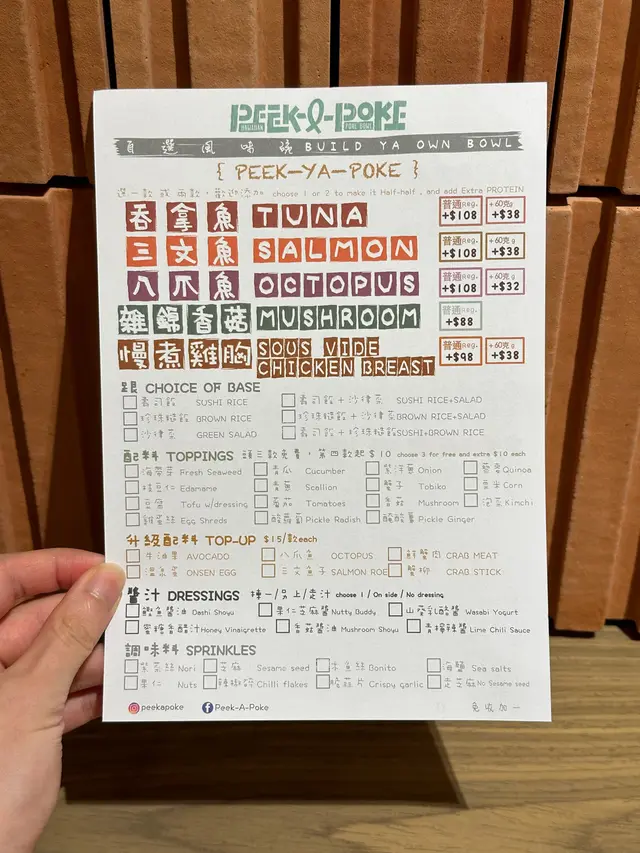 PEEK-A-POKE
HAWAIIAN POKE BOWL
自選風味碗 BUILD YA OWN BOWL
{ PEEK-YA-POKE }
選一款或兩款，歡迎添加 choose 1 or 2 to make it Half-half , and add Extra PROTEIN
吞拿魚 TUNA 普通Reg. +$108 +60克g +$38
三文魚 SALMON 普通Reg. +$108 +60克g +$38
八爪魚 OCTOPUS 普通Reg. +$108 +60克g +$32
雜錦香菇 MUSHROOM 普通Reg. +$88
慢煮雞胸 SOUS VIDE CHICKEN BREAST 普通Reg. +$98 +60克g +$38
跟 CHOICE OF BASE
壽司飯 SUSHI RICE 壽司飯+沙律菜 SUSHI RICE+SALAD
珍珠糙飯 BROWN RICE 珍珠糙飯+沙律菜 BROWN RICE+SALAD
沙律菜 GREEN SALAD 壽司飯+珍珠糙飯 SUSHI+BROWN RICE
配料 TOPPINGS 頭三款免費，第四款起 $10 choose 3 for free and extra $10 each
海帶芽 Fresh Seaweed 青瓜 Cucumber 紫洋蔥 Onion 藜麥 Quinoa
枝豆仁 Edamame 青蔥 Scallion 蟹子 Tobiko 粟米 Corn
豆腐 Tofu w/dressing 蕃茄 Tomatoes 香菇 Mushroom 泡菜 Kimchi
雞蛋絲 Egg Shreds 酸蘿蔔 Pickle Radish 酸酸薑 Pickle Ginger
升級配料 TOP-UP $15/款each
牛油果 AVOCADO 八爪魚 OCTOPUS 鮮蟹肉 CRAB MEAT
溫泉蛋 ONSEN EGG 三文魚子 SALMON ROE 蟹柳 CRAB STICK
醬汁 DRESSINGS 揀一/另上/走汁 choose 1 / On side / No dressing
鰹魚醬油 Dashi Shoyu 果仁芝麻醬 Nutty Buddy 山葵乳酪醬 Wasabi Yogurt
蜜糖香醋汁 Honey Vinaigrette 香菇醬油 Mushroom Shoyu 青檸辣醬 Lime Chili Sauce
調味料 SPRINKLES
紫菜絲 Nori 芝麻 Sesame seed 木魚絲 Bonito 海鹽 Sea salts
果仁 Nuts 辣椒碎 Chilli flakes 脆蒜片 Crispy garlic 走芝麻 No Sesame seed
peekapoke Peek-A-Poke 免收加一